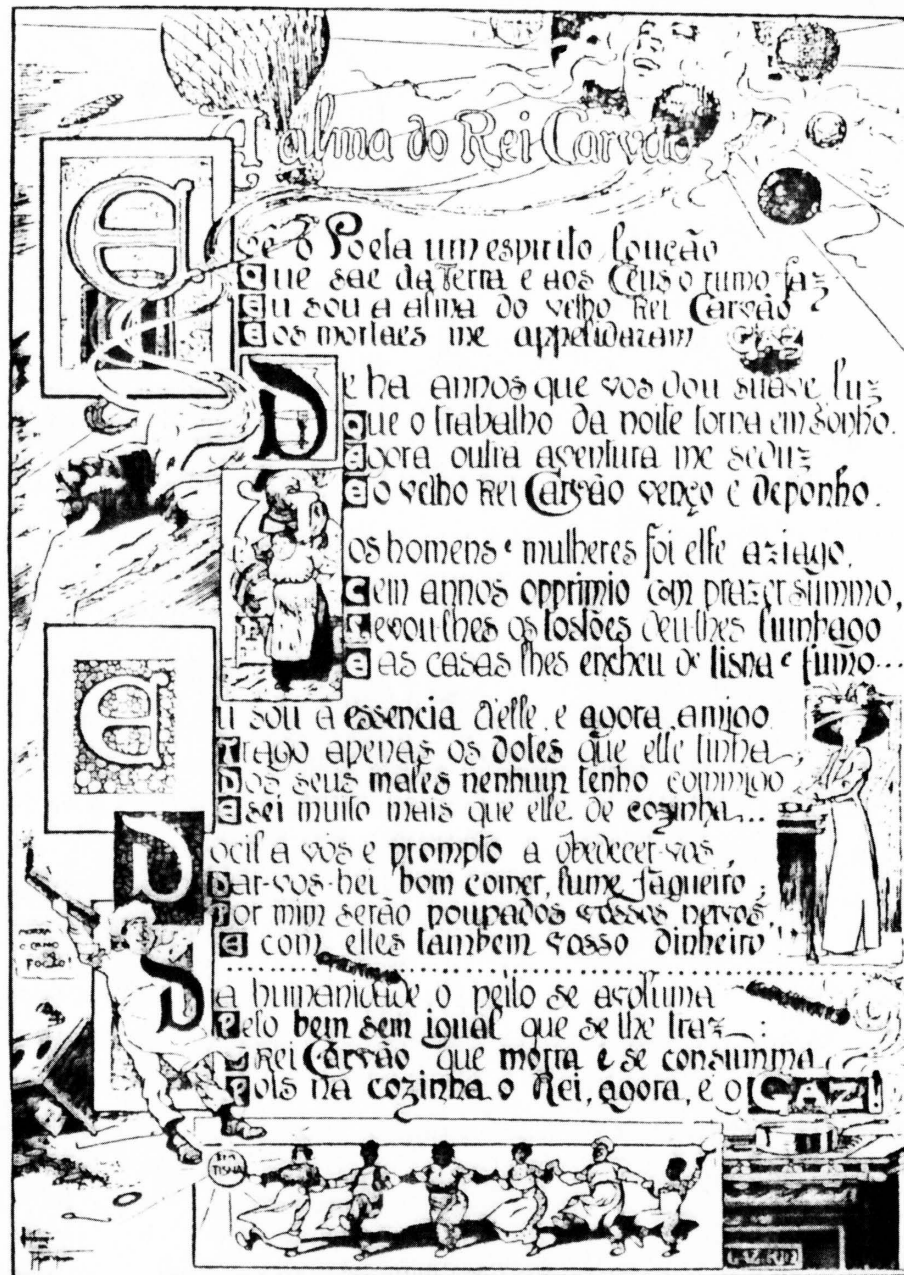 A alma do Rei Carvão
Vê o Poeta um espirito loução
Que sae da Terra e aos Ceus o rumo faz
Eu sou a alma do velho Rei Carvão
E os mortaes me appelidaram GAZ
De ha annos que vos dou suave luz
Que o trabalho da noite torna em sonho.
Agora outra aventura me seduz
E o velho Rei Carvão venço e deponho.
os homens e mulheres foi elle aziago,
Cem annos opprimio com prazer summo,
Levou-lhes os tostões deu-lhes lumbago
E as casas lhes encheu de tisna e fumo...
Eu sou a essencia d'elle, e agora, amigo
Trago apenas os dotes que elle tinha
Dos seus males nenhum tenho commigo
E sei muito mais que elle de cozinha...
Docil a vós e prompto a obedecer-vos,
Dar-vos-hei bom comer, lume fagueiro;
Por mim serão poupados vossos nervos,
E com elles tambem vosso dinheiro
Da humanidade o peito se avoluma
Pelo bem sem igual que se lhe traz:
O Rei Carvão que morra e se consumma
Pois na cozinha o Rei, agora, é o GAZ!
MORRA
O CRIADO
FOGÃO!
SEM
TISNA